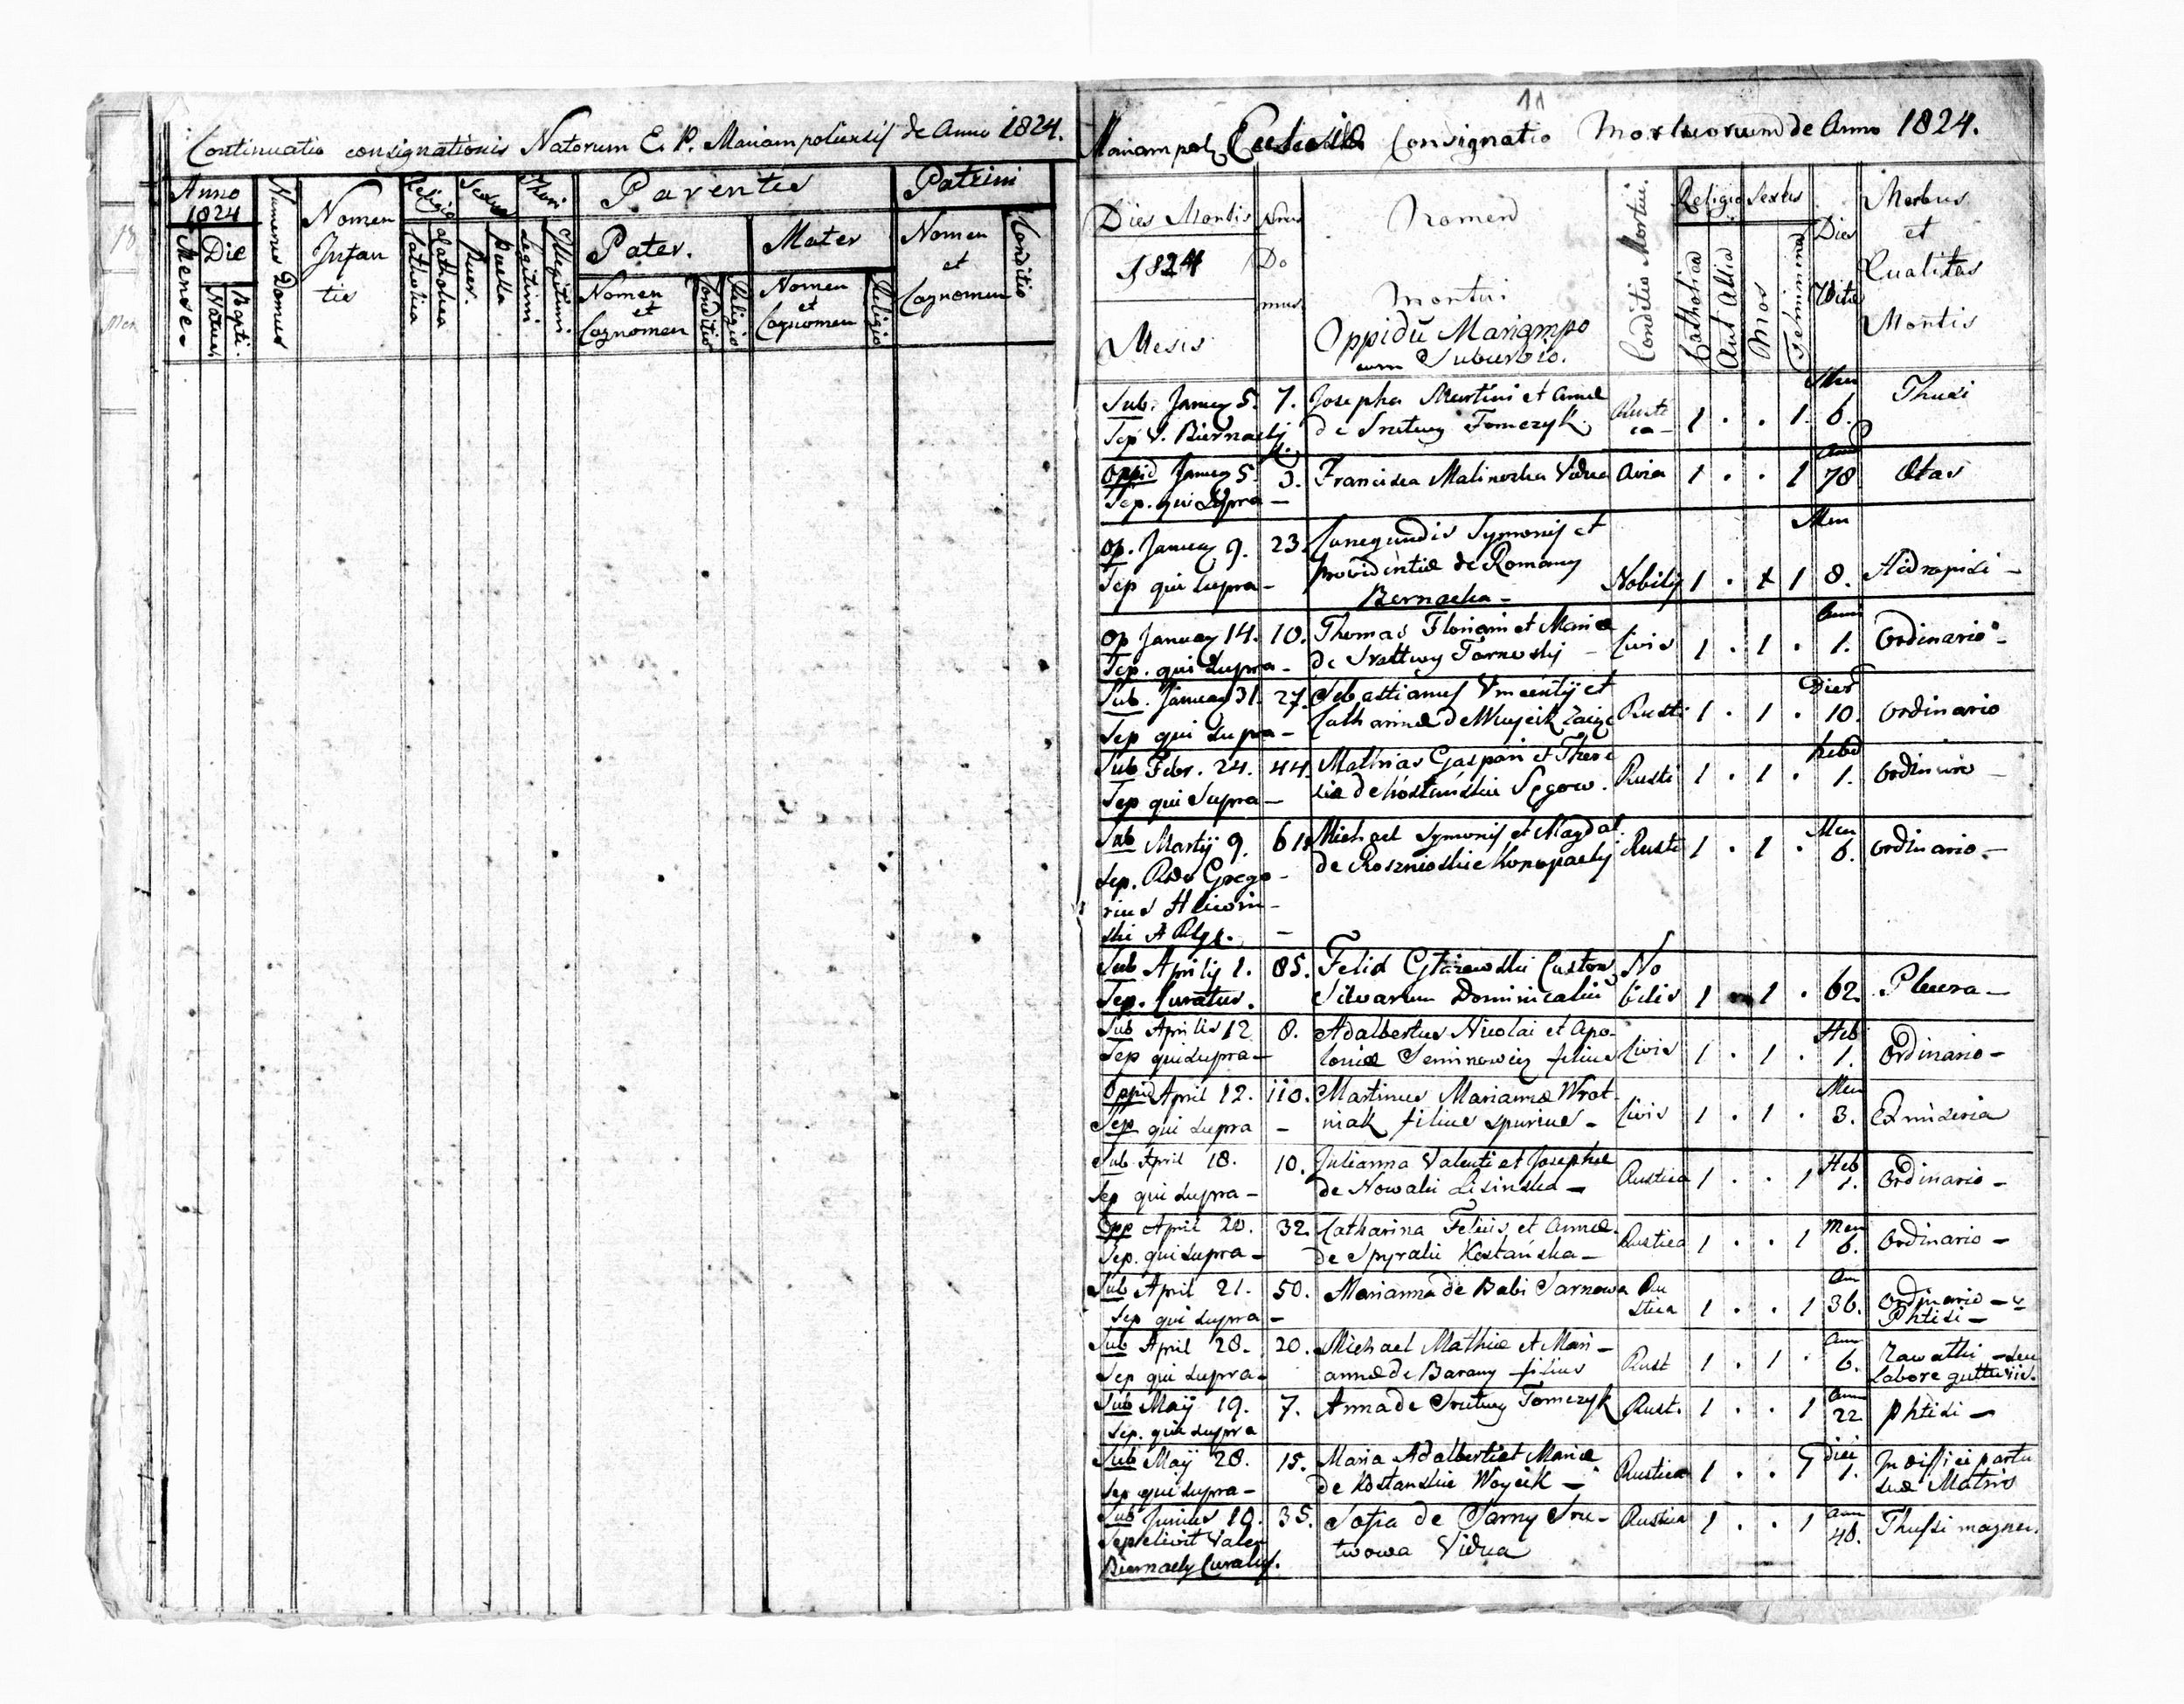 Continuatio consignationis Natorum E. P. Mariampoliensis de Anno 1824.
Anno
1824
Mense
Die
Natus
Bapti.
Numerus Domus
Nomen
Infan
tis
Religio
Catholica
Sexus
Puer.
Puella
Thori
Legitimi
Illegitimi.
Parentes
Pater.
Nomen
et
Cognomen
Conditio
Religio
Mater
Nomen
et
Cognomen
Religio
Patrini
Nomen
et
Cognomen
Conditio
11
Mariampol Ecclesiæ Consignatio Mortuorum de Anno 1824.
Dies Mortis
1824
Mesis
Nrus
Do
mus
Nomen
Mortui
Oppidū Mariampo
cum Suburbio.
Conditio Mortui.
Religio
Catholica
Aut Allia
Sexus
Mas
Feminina
Dies
Vitæ
Morbus
et
Qualitas
Mortis
Sub. January 5. 7. Josepha Martini et Annæ Rusti 1 . . 1. Men 6. Thusi
Sep V. Biernacki de Srutwy Tomczyk. ca -
Oppid January 5. 3. Francisca Malinoska Vidua 1 . . 1 78 Ætas
Sep. qui Supra -
Op. January 9. 23. Cunegundis Symonis et Men
Sep qui supra - Providentiæ de Romany Nobilis 1 . 1 8. Hidropisi -
Bernacka -
Op January 14. 10. Thomas Floriani et Mariæ Civis 1 . 1 . Anni 1. Ordinario -
Sep. qui supra - de Srattwy Tarnoskj -
Sub. January 31. 27. Sebastianus Vincentij et Rusti 1 . 1 . Dies 10. Ordinario
Sep qui supra - Catharinæ de Wuycik
Sub Febr. 24. 44. Mathias Gaspari et There Rusti 1 . 1 . Hebd 1. Ordinario -
Sep qui Supra - siæ de Sęgow.
Sub Martij 9. 61. Michael Symonis et Magdal Rusti 1 . 1 . Men 6. Ordinario. -
Sep. Rdo Grego - de Rosznioskie Konopackj
rius
ski
Sub Aprilij 1. 85. Felix Custos No
Sep. Curatus. Silvarum Dominicaliū bilis 1 1 . 62. Pleura -
Sub Aprilis 12 8. Adalbertus Nicolai et Apo- Civis 1 . 1 . Heb 1. Ordinario -
Sep qui supra - loniæ Seminowicz filius
Oppid April 12. 110. Martinus Mariannæ Wrot Civis 1 . 1 . Men 3. Ex miseria
Sep qui supra - niak filius spurius -
Sub April 18. 10. Julianna Valenti et Josephæ Rustica 1 . . 1 Heb 1. Ordinario -
Sep qui supra - de Nowaki Lisinska -
Opp April 20. 32. Catharina Felicis et Annæ Rustica 1 . . 1 Men 6. Ordinario -
Sep. qui supra - de Spyralii Kostańska -
Sub April 21. 50. Marianna de Babi Sarnowa Ru
Sep qui supra - stica 1 . . 1 An 36. Ordinario -
Phtisi -
Sub April 28. 20. Michael Mathiæ et Mari - Rust 1 . 1 . Ann 6. Zawatki - seu
Sep qui supra - annæ de Barany filius labore gutturis.
Sub Maÿ 19. 7. Anna de Srutwy Tomczyk Rust. 1 . . 1 Ann 22 phtisi -
Sep. qui supra
Sub Maÿ 28. 15. Maria Adalberti et Mariæ Rustica 1 . . 1 diei 1. In difficiei partu
Sep qui supra - de Kostanskie Woycik - suæ Matris
Sub Junius 19. 35. Sofia de Sarny Sru- Rustica 1 . . 1 Ann 48. Thussi magna.
Sepelivit Valen twowa Vidua
Biernacky Curatus.